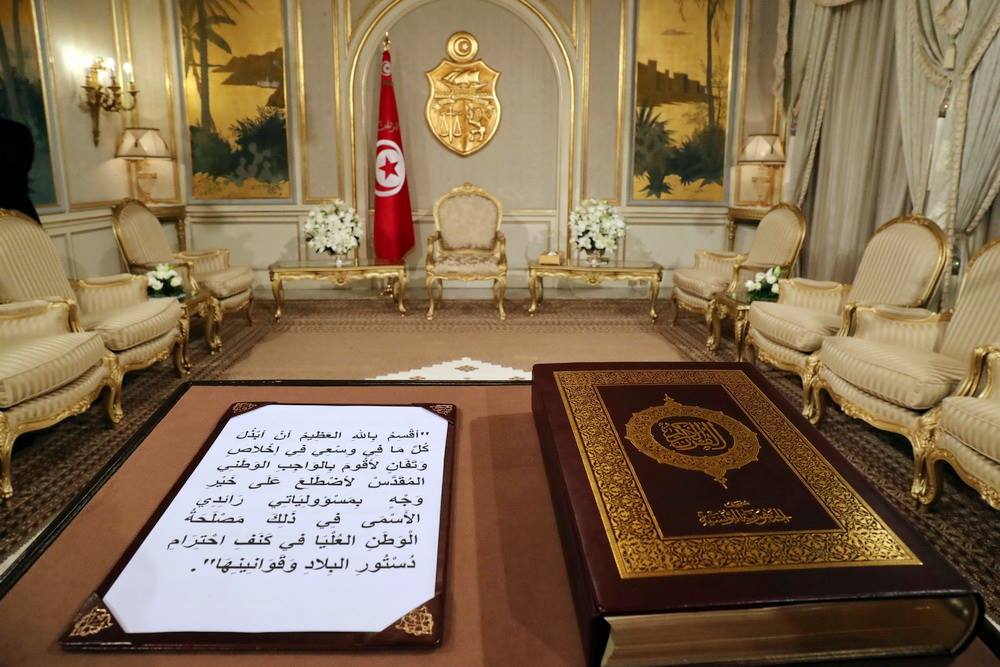 "أقْسِمُ بِاللهِ العَظِيمِ أنْ أبْذُلَ
كُلَّ مَا فِي وسْعِي فِي إخْلَاصٍ
وتَفَانٍ لأقُومَ بِالوَاجِبِ الوَطَنِي
المُقَدَّسِ لأضْطَلِعَ عَلَى خَيْرِ
وَجْهٍ بِمَسْؤولِيَاتِي رَائِدِي
الأسْمَى فِي ذَلِكَ مَصْلَحَةُ
الْوَطَنِ العُلْيَا فِي كَنَفِ احْتِرَامِ
دُسْتُورِ البِلَادِ وقَوَانِينِهَا".
القرآن الكريم